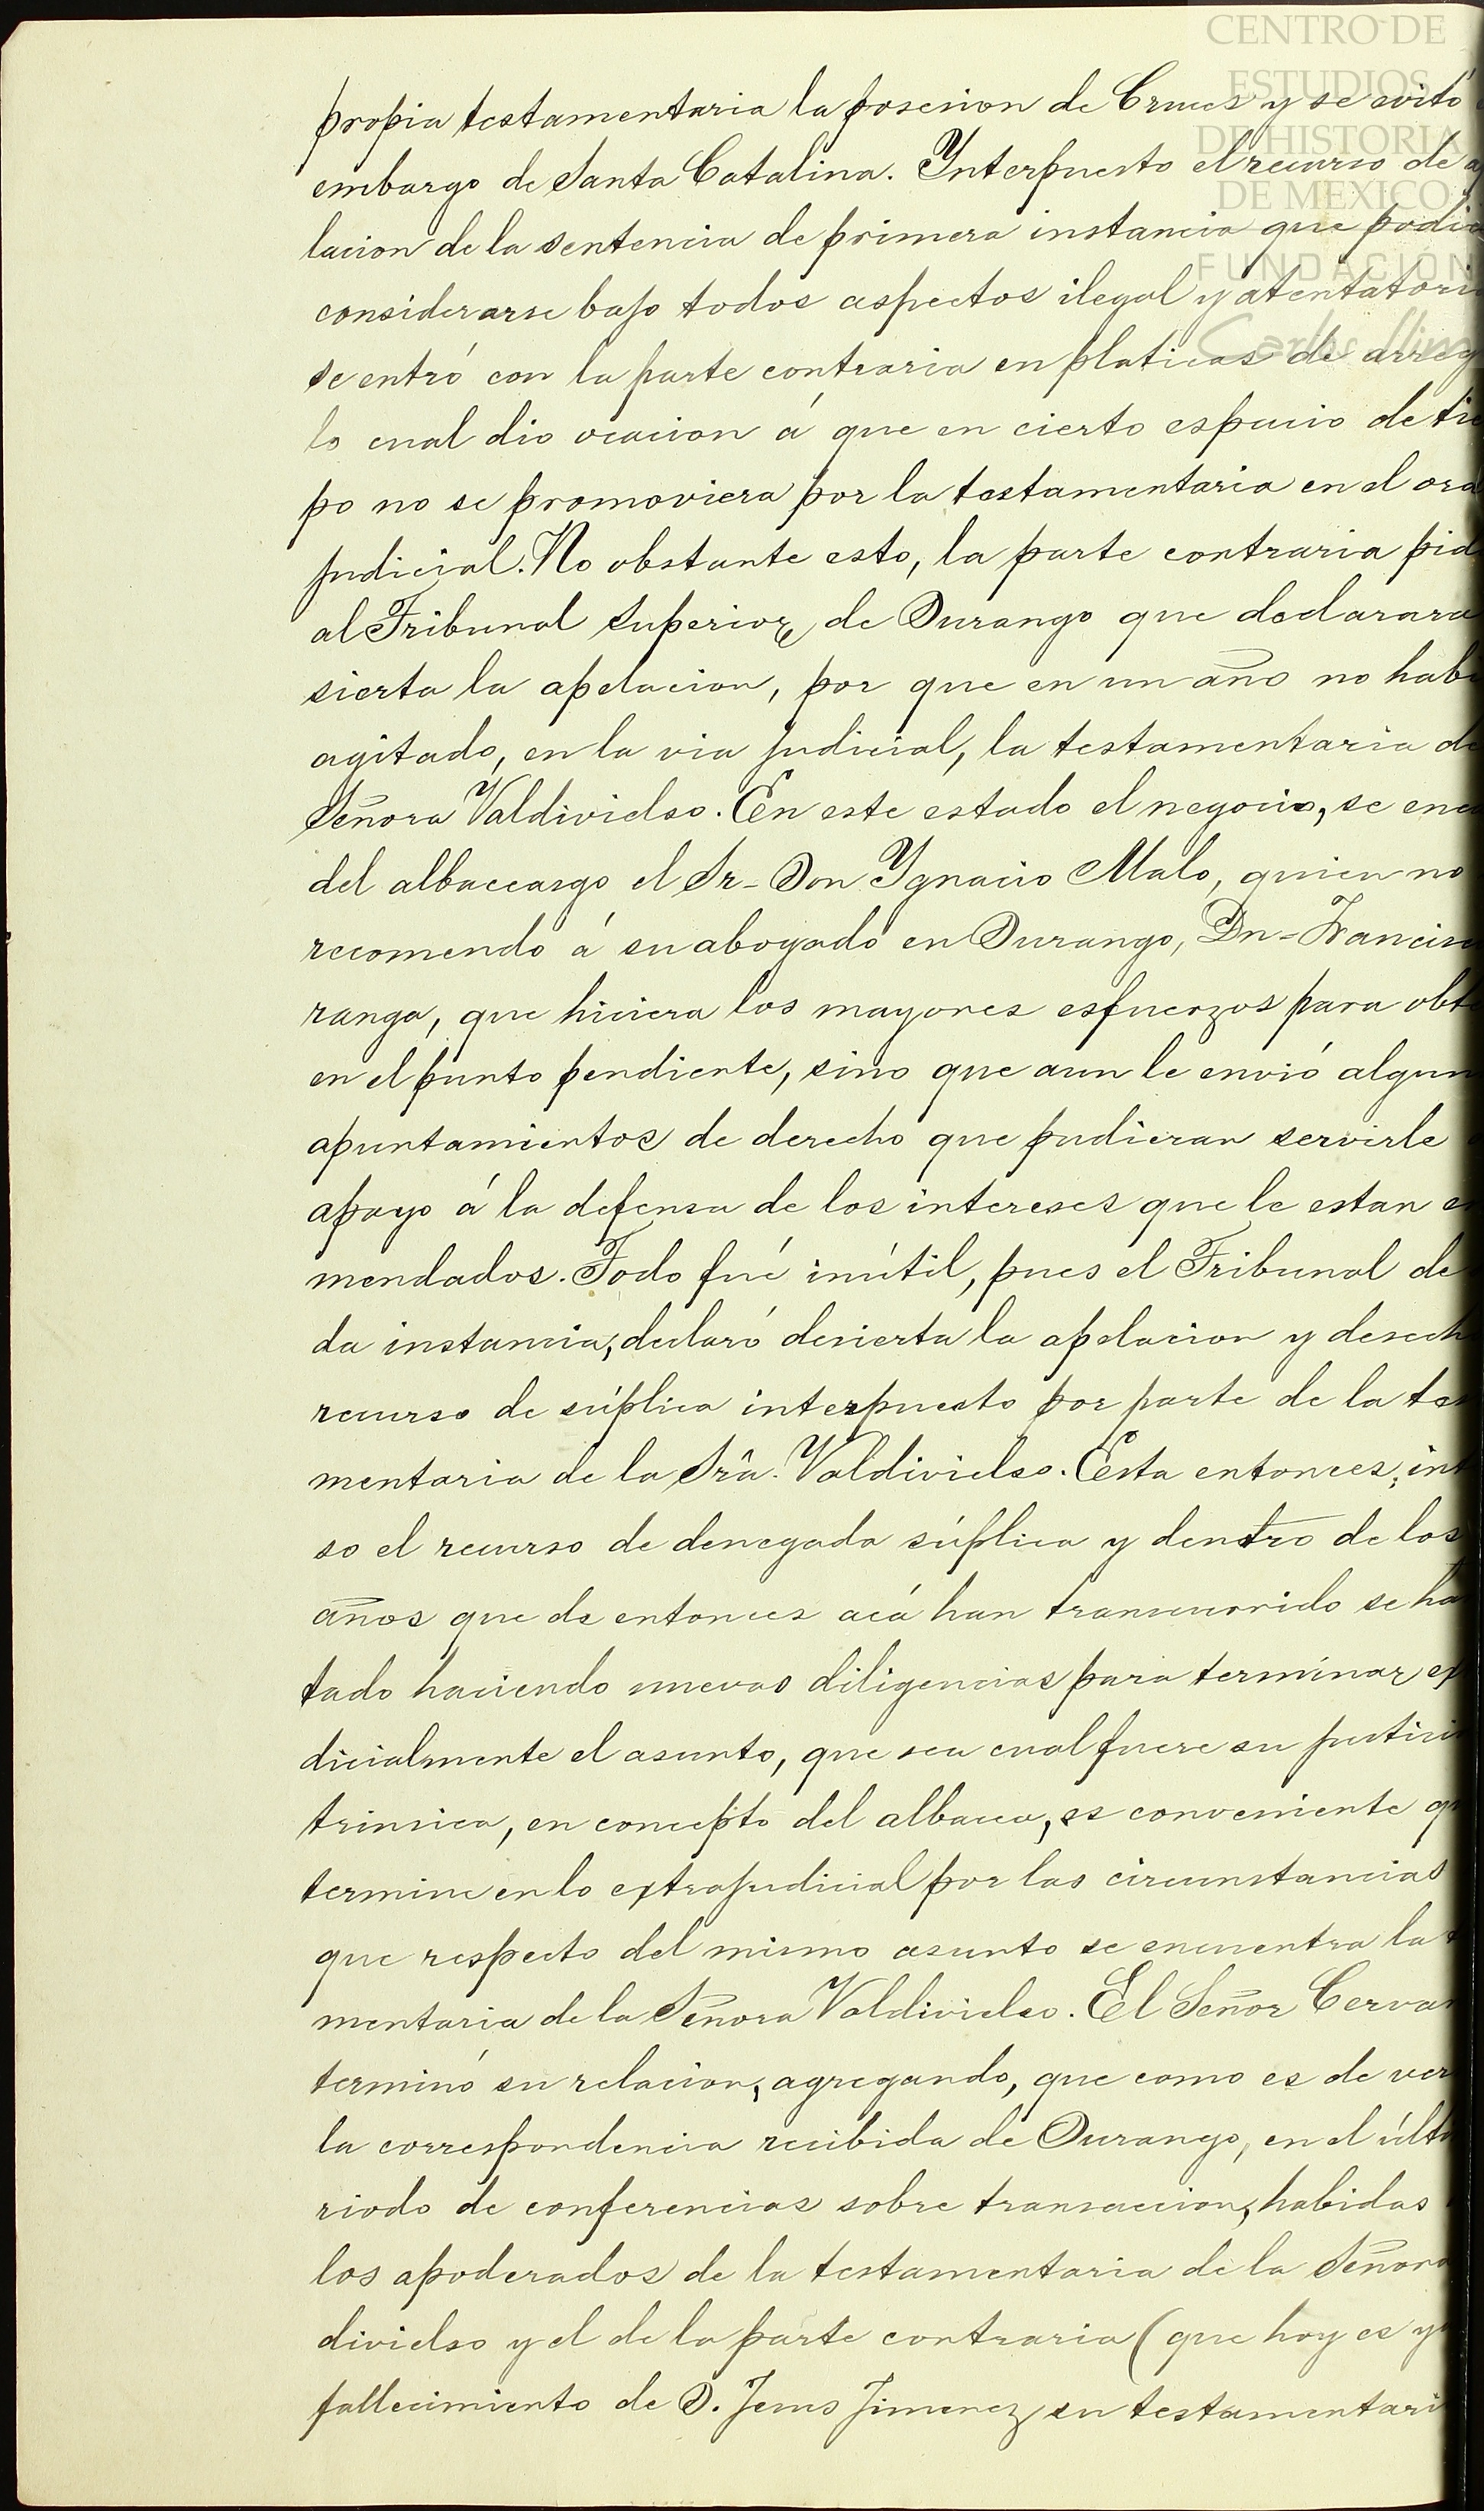 CENTRO DE
ESTUDIOS
DE HISTORIA
DE MEXICO
FUNDACIÓN
Carlos Slim
propia testamentaria la posesion de Cruces y se evitó
embargo de Santa Catalina. Ynterpuesto el recurso de a
lacion de la sentencia de primera instancia que podia
considerarse bajo todos aspectos ilegal y atentatori
se entró con la parte contraria en platicas de arreg
lo cual dio ocacion á que en cierto espacio de tie
po no se promoviera por la testamentaria en el ord
judicial. No obstante esto, la parte contraria pid
al Tribunal Superior, de Durango que declarara
sierta la apelacion, por que en un año no habi
agitado, en la via judicial, la testamentaria de
Señora Valdivielso. En este estado el negocio, se enca
del albaceasgo el Sr- Don Ygnacio Malo, quien no
recomendó á su abogado en Durango, Dn= Francisc
ranga, que hiciera los mayores esfuerzos para obte
en el punto pendiente, sino que aun le envió algun
apuntamientos de derecho que pudieran servirle
apoyo á la defensa de los intereses que le estan en
mendados. Todo fué inútil, pues el Tribunal de
da instancia, declaró desierta la apelacion y desech
recurso de súplica interpuesto por parte de la tes
mentaria de la Srâ. Valdivielso. Esta entonces, int
so el recurso de denegada súplica y dentro de los
años que de entonces acá han transcurrido se ha
tado haciendo nuevas diligencias para terminar ex
dicialmente el asunto, que sea cual fuere su justici
trinsica, en concepto del albacea, es conveniente qu
termine en lo extrajudicial por las circunstancias
que respecto del mismo asunto se encuentra la t
mentaria de la Señora Valdivielso. El Señor Cervan
terminó su relacion, agregando, que como es de ver
la correspondencia recibida de Durango, en el últi
riodo de conferencias sobre transaccion, habidas
los apoderados de la testamentaria de la Señora
divielso y el de la parte contraria (que hoy es y
fallecimiento de D. Jesus Jimenez su testamentari